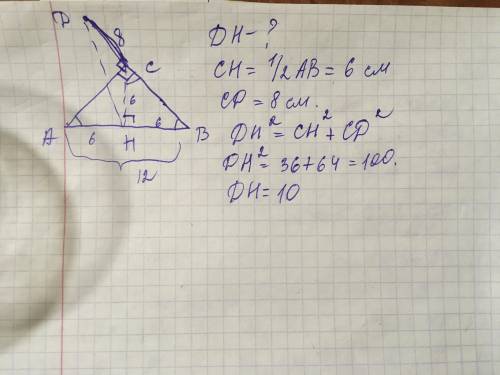 D
8
C
6
A 6 H 6 B
12
DH - ?
CH = 1/2 AB = 6 см
CD = 8 см.
DH² = CH² + CD²
DH² = 36 + 64 = 100.
DH = 10